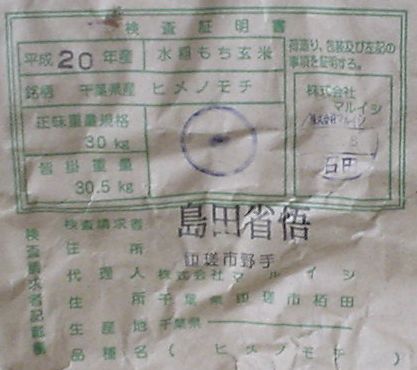 検査証明書
平成20年産 水稲もち玄米
荷造り、包装及び左記の
事項を証明する。
銘柄 千葉県産 ヒメノモチ
株式会社
マルイシ
正味重量規格
30 kg
皆掛重量
30.5 kg
検査請求者記載欄
検査請求者 島田省悟
住所 匝瑳市野手
代理人 株式会社マルイシ
住所 千葉県匝瑳市栢田
生産地 千葉県
品種名(ヒメノモチ)